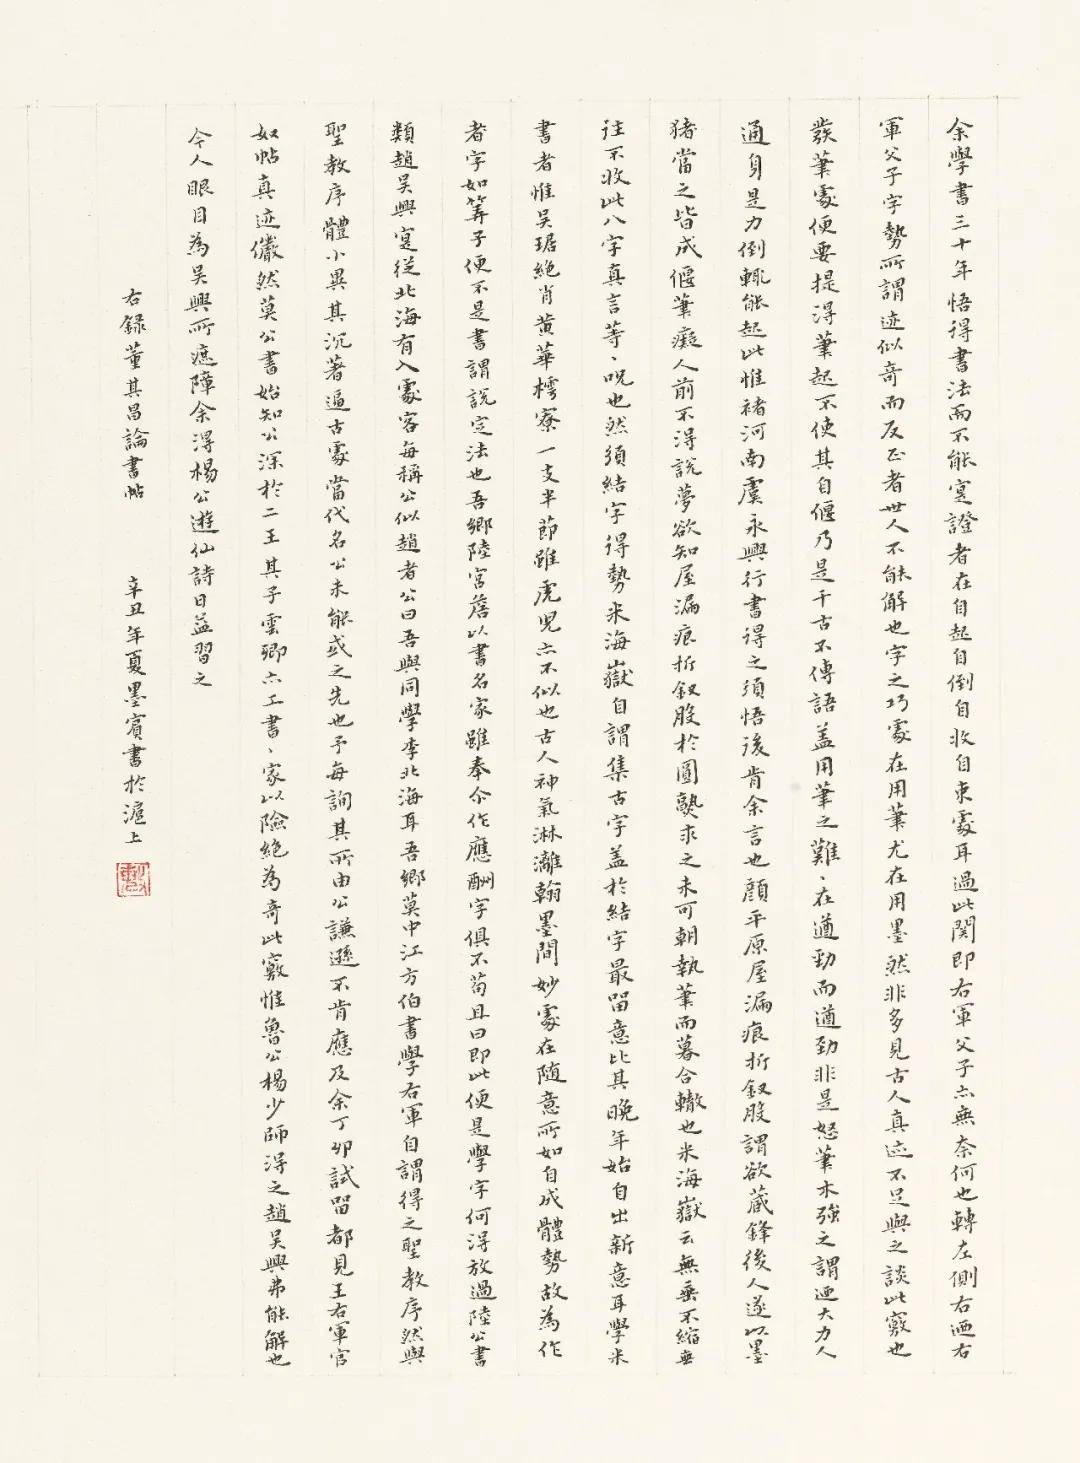 余學書三十年悟得書法而不能寔證者在自起自倒自收自束處耳過此関即右軍父子亦無奈何也轉左側右迺右
軍父子字勢所謂迹似奇而反正者世人不能解也字之巧處在用筆尤在用墨然非多見古人真迹不足與之談此竅也
發筆處便要提淂筆起不使其自偃乃是千古不傳語盖用筆之難、在遒勁而遒勁非是怒筆木強之謂迺大力人
通身是力倒輒能起此惟褚河南虞永興行書得之須悟後肯余言也顔平原屋漏痕折釵股謂欲蔵鋒後人遂以墨
猪當之皆成偃筆癡人前不得說夢欲知屋漏痕折釵股於圓熟求之未可朝執筆而暮合轍也米海嶽云無垂不縮無
往不收此八字真言等、呪也然須結字得勢米海嶽自謂集古字盖於結字最留意比其晚年始自出新意耳學米
書者惟吴琚絶肖黄華樗寮一支半節雖虎兒亦不似也古人神氣淋漓翰墨間妙處在随意所如自成體勢故為作
者字如筭子便不是書謂說定法也吾鄉陸宮詹以書名家雖奉尒作應酬字俱不苟且曰即此便是學字何得放過陸公書
類趙吴興寔從北海有入處客每稱公似趙者公曰吾與同學李北海耳吾鄉莫中江方伯書學右軍自謂得之聖教序然與
聖教序體小異其沉著逼古處當代名公未能或之先也予每詢其所由公謙遜不肯應及余丁卯試留都見王右軍官
奴帖真迹儼然莫公書始知公深於二王其子雲卿亦工書、家以險絶為奇此竅惟魯公楊少師淂之趙吴興弗能解也
今人眼目為吴興所遮障余淂楊公遊仙詩日益習之
右録董其昌論書帖 辛丑年夏墨賓書於滬上